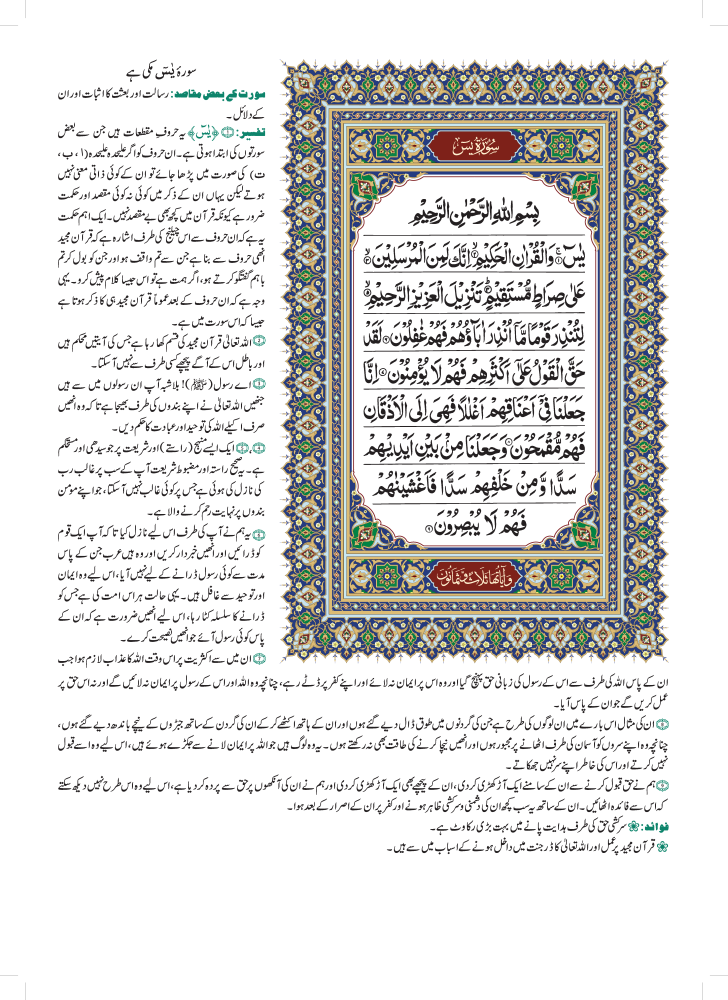 سورۂ یٰسٓ مکی ہے
سورت کے بعض مقاصد: رسالت اور بعثت کا اثبات اور ان
کے دلائل۔
تفسیر: ﴿۱﴾ ﴿یٰسٓ﴾ یہ حروفِ مقطعات ہیں جن سے بعض
سورتوں کی ابتدا ہوتی ہے۔ ان حروف کو اگر علیحدہ علیحدہ (ا، ب،
ت) کی صورت میں پڑھا جائے تو ان کے کوئی ذاتی معنی نہیں
ہوتے لیکن یہاں ان کے ذکر میں کوئی نہ کوئی مقصد اور حکمت
ضرور ہے کیونکہ قرآن میں کچھ بھی بے مقصد نہیں۔ ایک اہم حکمت
یہ ہے کہ ان حروف سے اس چیلنج کی طرف اشارہ ہے کہ قرآن مجید
انھی حروف سے بنا ہے جن سے تم واقف ہو اور جن کو بول کر تم
باہم گفتگو کرتے ہو، اگر ہمت ہے تو اس جیسا کلام پیش کرو۔ یہی
وجہ ہے کہ ان حروف کے بعد عموماً قرآن مجید ہی کا ذکر ہوتا ہے
جیسا کہ اس سورت میں ہے۔
﴿۲﴾ اللہ تعالیٰ قرآن مجید کی قسم کھا رہا ہے جس کی آیتیں محکم ہیں
اور باطل اس کے آگے پیچھے کسی طرف سے نہیں آ سکتا۔
﴿۳﴾ اے رسول (ﷺ)! بلاشبہ آپ ان رسولوں میں سے ہیں
جنھیں اللہ تعالیٰ نے اپنے بندوں کی طرف بھیجا ہے تاکہ وہ انھیں
صرف اکیلے اللہ کی توحید اور عبادت کا حکم دیں۔
﴿۴، ۵﴾ ایک ایسے منہج (راستے) اور شریعت پر جو سیدھی اور مستحکم
ہے۔ یہ صحیح راستہ اور مضبوط شریعت آپ کے سب پر غالب رب
کی نازل کی ہوئی ہے جس پر کوئی غالب نہیں آ سکتا، جو اپنے مومن
بندوں پر نہایت رحم کرنے والا ہے۔
﴿۶﴾ یہ ہم نے آپ کی طرف اس لیے نازل کیا تاکہ آپ ایک قوم
کو ڈرائیں اور انھیں خبردار کریں اور وہ ہیں عرب جن کے پاس
مدت سے کوئی رسول ڈرانے کے لیے نہیں آیا، اس لیے وہ ایمان
اور توحید سے غافل ہیں۔ یہی حالت ہر اس امت کی ہے جس کو
ڈرانے کا سلسلہ کٹا رہا، اس لیے انھیں ضرورت ہے کہ ان کے
پاس کوئی رسول آئے جو انھیں نصیحت کرے۔
﴿۷﴾ ان میں سے اکثریت پر اس وقت اللہ کا عذاب لازم ہوا جب
سُوْرَةُ يٰسٓ
بِسْمِ اللّٰهِ الرَّحْمٰنِ الرَّحِيْمِ
يٰسٓ ۚ﴿۱﴾ وَالْقُرْاٰنِ الْحَكِيْمِ ۙ﴿۲﴾ اِنَّكَ لَمِنَ الْمُرْسَلِيْنَ ۙ﴿۳﴾
عَلٰى صِرَاطٍ مُّسْتَقِيْمٍ ؕ﴿۴﴾ تَنْزِيْلَ الْعَزِيْزِ الرَّحِيْمِ ۙ﴿۵﴾
لِتُنْذِرَ قَوْمًا مَّاۤ اُنْذِرَ اٰبَآؤُهُمْ فَهُمْ غٰفِلُوْنَ ﴿۶﴾ لَقَدْ
حَقَّ الْقَوْلُ عَلٰۤى اَكْثَرِهِمْ فَهُمْ لَا يُؤْمِنُوْنَ ﴿۷﴾ اِنَّا
جَعَلْنَا فِيْۤ اَعْنَاقِهِمْ اَغْلٰلًا فَهِيَ اِلَى الْاَذْقَانِ
فَهُمْ مُّقْمَحُوْنَ ﴿۸﴾ وَجَعَلْنَا مِنْۢ بَيْنِ اَيْدِيْهِمْ
سَدًّا وَّمِنْ خَلْفِهِمْ سَدًّا فَاَغْشَيْنٰهُمْ
فَهُمْ لَا يُبْصِرُوْنَ ﴿۹﴾
وَاٰيَاتُهَا ثَلَاثٌ وَّثَمَانُوْنَ
ان کے پاس اللہ کی طرف سے اس کے رسول کی زبانی حق پہنچ گیا اور وہ اس پر ایمان نہ لائے اور اپنے کفر پر ڈٹے رہے، چنانچہ وہ اللہ اور اس کے رسول پر ایمان نہ لائیں گے اور نہ اس حق پر
عمل کریں گے جو ان کے پاس آیا۔
﴿۸﴾ ان کی مثال اس بارے میں ان لوگوں کی طرح ہے جن کی گردنوں میں طوق ڈال دیے گئے ہوں اور ان کے ہاتھ اکٹھے کر کے ان کی گردن کے ساتھ جبڑوں کے نیچے باندھ دیے گئے ہوں،
چنانچہ وہ اپنے سروں کو آسمان کی طرف اٹھانے پر مجبور ہوں اور انھیں نیچا کرنے کی طاقت بھی نہ رکھتے ہوں۔ یہ وہ لوگ ہیں جو اللہ پر ایمان لانے سے جکڑے ہوئے ہیں، اس لیے وہ اسے قبول
نہیں کرتے اور اس کی خاطر اپنے سر نہیں جھکاتے۔
﴿۹﴾ ہم نے حق قبول کرنے سے ان کے سامنے ایک آڑ کھڑی کر دی، ان کے پیچھے بھی ایک آڑ کھڑی کر دی اور ہم نے ان کی آنکھوں پر حق سے پردہ کر دیا ہے، اس لیے وہ اس طرح نہیں دیکھ سکتے
کہ اس سے فائدہ اٹھائیں۔ ان کے ساتھ یہ سب کچھ ان کی دشمنی و سرکشی ظاہر ہونے اور کفر پر ان کے اصرار کے بعد ہوا۔
فوائد: سرکشی حق کی طرف ہدایت پانے میں بہت بڑی رکاوٹ ہے۔
قرآن مجید پر عمل اور اللہ تعالیٰ کا ڈر جنت میں داخل ہونے کے اسباب میں سے ہیں۔